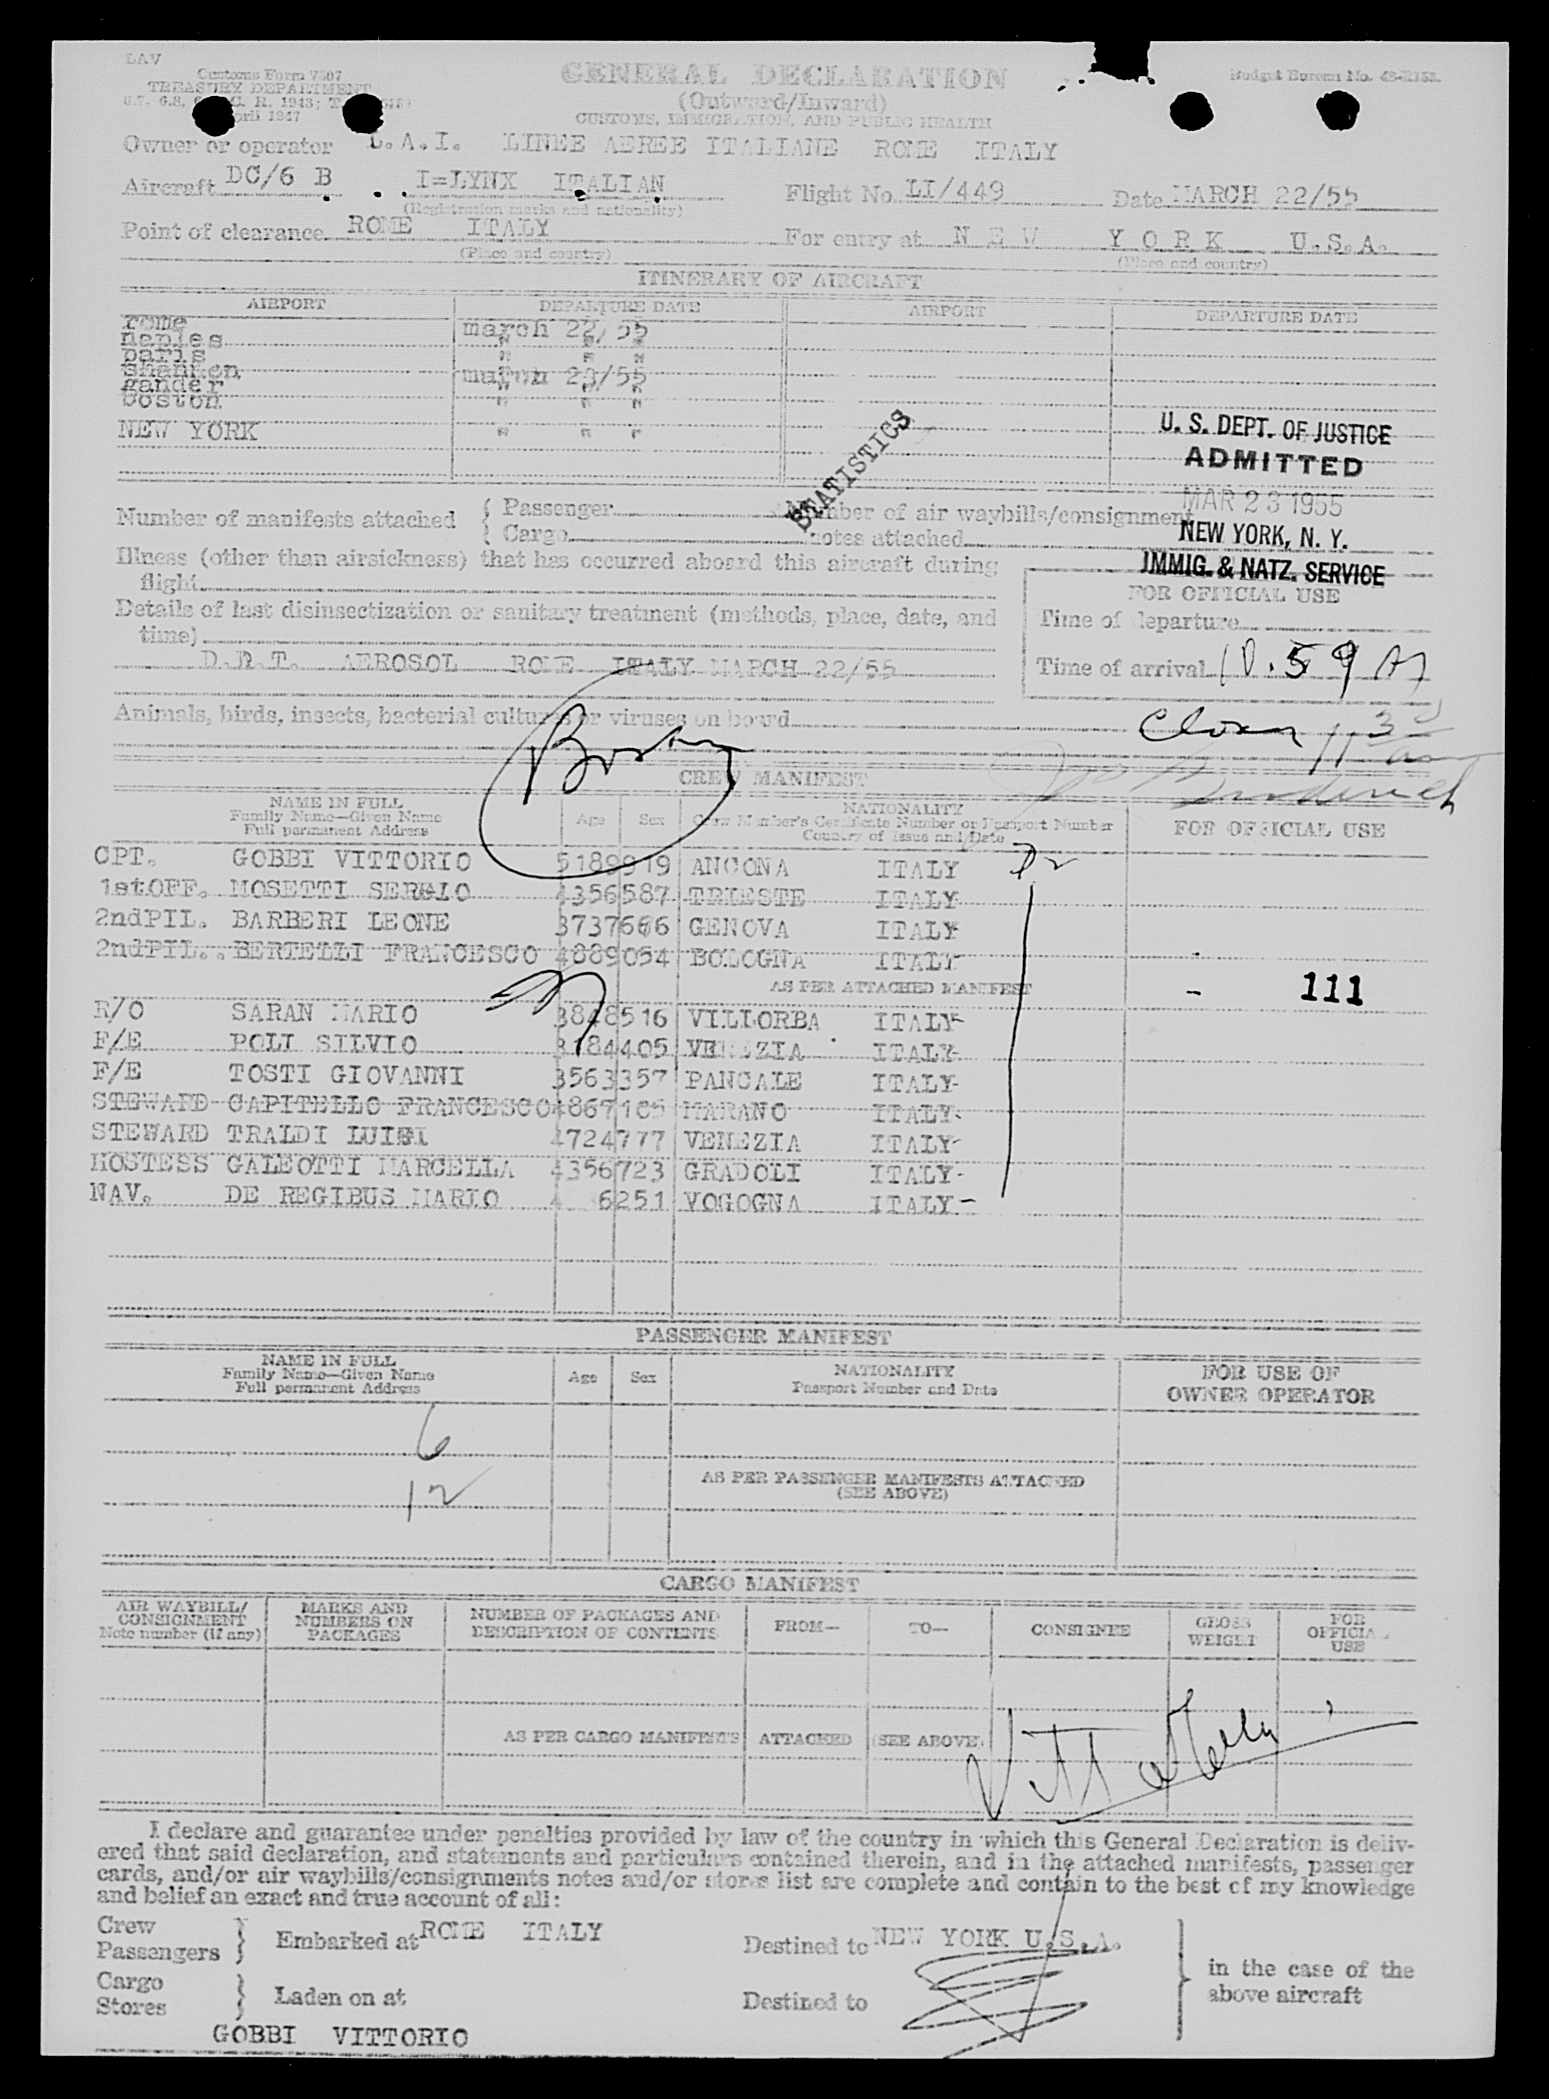 LAV
Customs Form 7507
TREASURY DEPARTMENT
April 1947
GENERAL DECLARATION
(Outward/Inward)
CUSTOMS, IMMIGRATION, AND PUBLIC HEALTH
Budget Bureau No.
Owner or operator L.A.I. LINEE AEREE ITALIANE ROME ITALY
Aircraft DC/6 B I=LYNX ITALIAN Flight No. LI/449 Date MARCH 22/55
(Registration marks and nationality)
Point of clearance ROME ITALY For entry at N E W Y O R K U.S.A.
(Place and country) (Place and country)
ITINERARY OF AIRCRAFT
AIRPORT DEPARTURE DATE AIRPORT DEPARTURE DATE
rome march 22/55
naples " " "
paris " " "
shannon march 23/55
gander " " "
boston " " "
NEW YORK " " "
STATISTICS
U. S. DEPT. OF JUSTICE
ADMITTED
MAR 23 1955
NEW YORK, N. Y.
IMMIG. & NATZ. SERVICE
Number of manifests attached { Passenger Number of air waybills/consignment
{ Cargo notes attached
Illness (other than airsickness) that has occurred aboard this aircraft during
flight
FOR OFFICIAL USE
Details of last disinsectization or sanitary treatment (methods, place, date, and
time)
Time of departure
D.D.T. AEROSOL ROME ITALY MARCH 22/55
Time of arrival 10.59 A
Animals, birds, insects, bacterial cultures or viruses on board
CREW MANIFEST
NAME IN FULL
Family Name—Given Name
Full permanent Address
Age Sex
NATIONALITY
Crew Member's Certificate Number or Passport Number
Country of issue and Date
FOR OFFICIAL USE
CPT. GOBBI VITTORIO 5189919 ANCONA ITALY
1stOFF. MOSETTI SERGIO 4356587 TRIESTE ITALY
2ndPIL. BARBERI LEONE 3737666 GENOVA ITALY
2ndPIL.. BERTELLI FRANCESCO 4889054 BOLOGNA ITALY
AS PER ATTACHED MANIFEST
- 111
R/O SARAN MARIO 3848516 VILLORBA ITALY
F/E POLI SILVIO 3184405 VENEZIA ITALY
F/E TOSTI GIOVANNI 3563357 PANCALE ITALY
STEWARD CAPITELLO FRANCESCO 4867105 MARANO ITALY
STEWARD TRALDI LUIGI 4724777 VENEZIA ITALY
HOSTESS GALEOTTI MARCELLA 4356723 GRADOLI ITALY
NAV. DE REGIBUS MARIO 6251 VOGOGNA ITALY
PASSENGER MANIFEST
NAME IN FULL
Family Name—Given Name
Full permanent Address
Age Sex
NATIONALITY
Passport Number and Date
FOR USE OF
OWNER OPERATOR
6
12
AS PER PASSENGER MANIFESTS ATTACHED
(SEE ABOVE)
CARGO MANIFEST
AIR WAYBILL/
CONSIGNMENT
Note number (if any)
MARKS AND
NUMBERS ON
PACKAGES
NUMBER OF PACKAGES AND
DESCRIPTION OF CONTENTS
FROM— TO— CONSIGNEE
GROSS
WEIGHT
FOR
OFFICIAL
USE
AS PER CARGO MANIFESTS ATTACHED (SEE ABOVE)
I declare and guarantee under penalties provided by law of the country in which this General Declaration is deliv-
ered that said declaration, and statements and particulars contained therein, and in the attached manifests, passenger
cards, and/or air waybills/consignments notes and/or stores list are complete and contain to the best of my knowledge
and belief an exact and true account of all:
Crew
Passengers } Embarked at ROME ITALY Destined to NEW YORK U.S.A.
in the case of the
above aircraft
Cargo
Stores } Laden on at Destined to
GOBBI VITTORIO